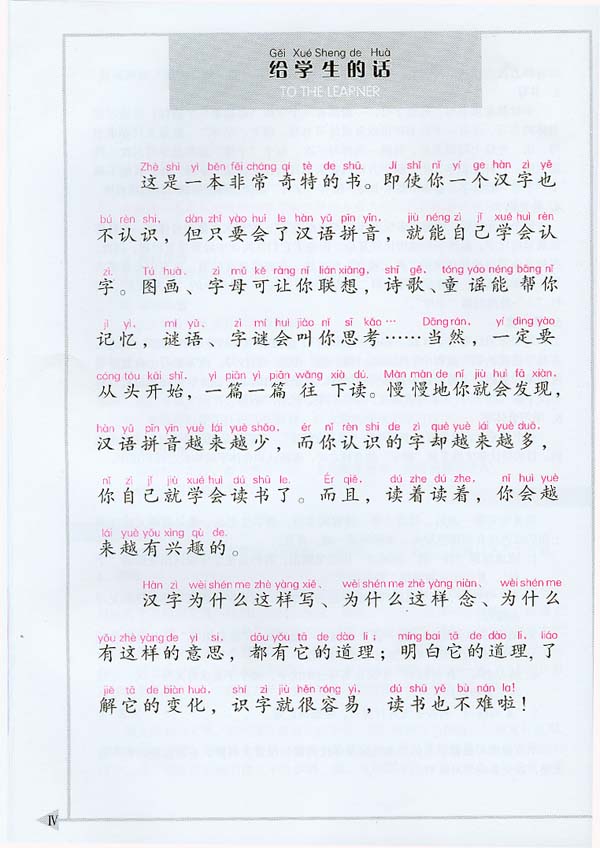 Gěi Xué Sheng de Huà
给学生的话
TO THE LEARNER
Zhè shì yì běn fēi cháng qí tè de shū. Jí shǐ nǐ yí ge hàn zì yě
这是一本非常奇特的书。即使你一个汉字也
bú rèn shi, dàn zhǐ yào huì le hàn yǔ pīn yīn, jiù néng zì jǐ xué huì rèn
不认识，但只要会了汉语拼音，就能自己学会认
zì. Tú huà、 zì mǔ kě ràng nǐ lián xiǎng, shī gē、 tóng yáo néng bāng nǐ
字。图画、字母可让你联想，诗歌、童谣能帮你
jì yì, mí yǔ、 zì mí huì jiào nǐ sī kǎo… Dāng rán, yí dìng yào
记忆，谜语、字谜会叫你思考……当然，一定要
cóng tóu kāi shǐ, yì piān yì piān wǎng xià dú. Màn màn de nǐ jiù huì fā xiàn,
从头开始，一篇一篇往下读。慢慢地你就会发现，
hàn yǔ pīn yīn yuè lái yuè shǎo, ér nǐ rèn shi de zì què yuè lái yuè duō,
汉语拼音越来越少，而你认识的字却越来越多，
nǐ zì jǐ jiù xué huì dú shū le. Ér qiě, dú zhe dú zhe, nǐ huì yuè
你自己就学会读书了。而且，读着读着，你会越
lái yuè yǒu xìng qù de.
来越有兴趣的。
Hàn zì wèi shén me zhè yàng xiě、 wèi shén me zhè yàng niàn、 wèi shén me
汉字为什么这样写、为什么这样念、为什么
yǒu zhè yàng de yì si, dōu yǒu tā de dào lǐ; míng bai tā de dào lǐ, liǎo
有这样的意思，都有它的道理；明白它的道理,了
jiě tā de biàn huà, shí zì jiù hěn róng yì, dú shū yě bù nán la!
解它的变化，识字就很容易，读书也不难啦！
IV